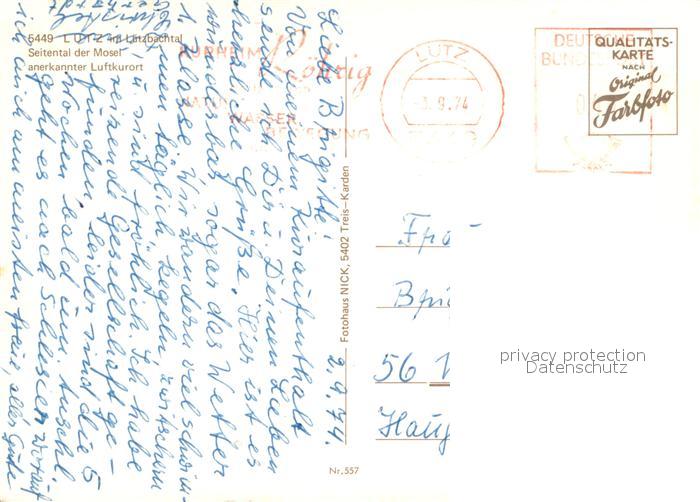 5449 LUTZ im Lützbachtal
Seitental der Mosel
anerkannter Luftkurort
KURHEIM
Röhrig
WASSER
LUTZ
-3.9.74
DEUTSCHE
BUNDES
QUALITÄTS-
KARTE
NACH
Original
Farbfoto
2.9.74.
Liebe Brigitte!
Von meinem Kuraufenthalt
send ich Dir u. Deinen Lieben
herzliche Grüße. Hier ist es
wunderbar, sogar das Wetter
1. Klasse. Wir wandern viel schwim-
men täglich, kegeln, zwischen
u. sind fröhlich. Ich habe
reizende Gesellschaft ge-
funden, leider sind die 5
Wochen bald um. Anschl.
geht es nach Schlesien worauf
ich mich am meisten freue, alles Gute
Fotohaus NICK, 5402 Treis-Karden
Nr. 557
Frau
Bri
56
Haup
privacy protection
Datenschutz